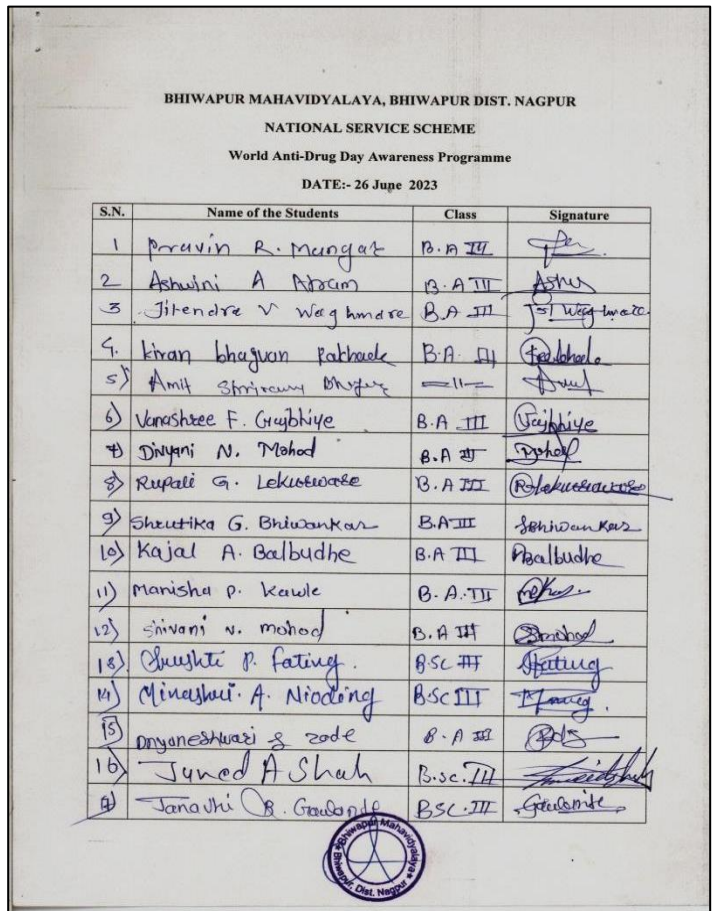 BHIWAPUR MAHAVIDYALAYA, BHIWAPUR DIST. NAGPUR
NATIONAL SERVICE SCHEME
World Anti-Drug Day Awareness Programme
DATE:- 26 June 2023
S.N. Name of the Students Class Signature
1 Pravin R. B.A III
2 Ashwini A Atram B.A III
3 Jitendra V Waghmare B.A III Waghmare
4. kiran bhagvan B.A. III
5) Amit —11—
6) Vanashree F. Gajbhiye B.A III Gajbhiye
7) Divyani N. Mohod B.A III
8) Rupali G. B.A III
9) Shrutika G. Bhiwankar B.A III SBhiwankar
10) Kajal A. Balbudhe B.A III Balbudhe
11) Manisha P. Kawle B.A. III
12) Shivani N. mohod B.A III Smohod
13) P. fating. B.SC III fating
14) A. BSC III
15) Dnyaneshwari S zode B.A III
16) Juned A Shah B.sc. III
17) R. Gawande BSC.III
Bhiwapur Mahavidyalaya
Bhiwapur, Dist. Nagpur